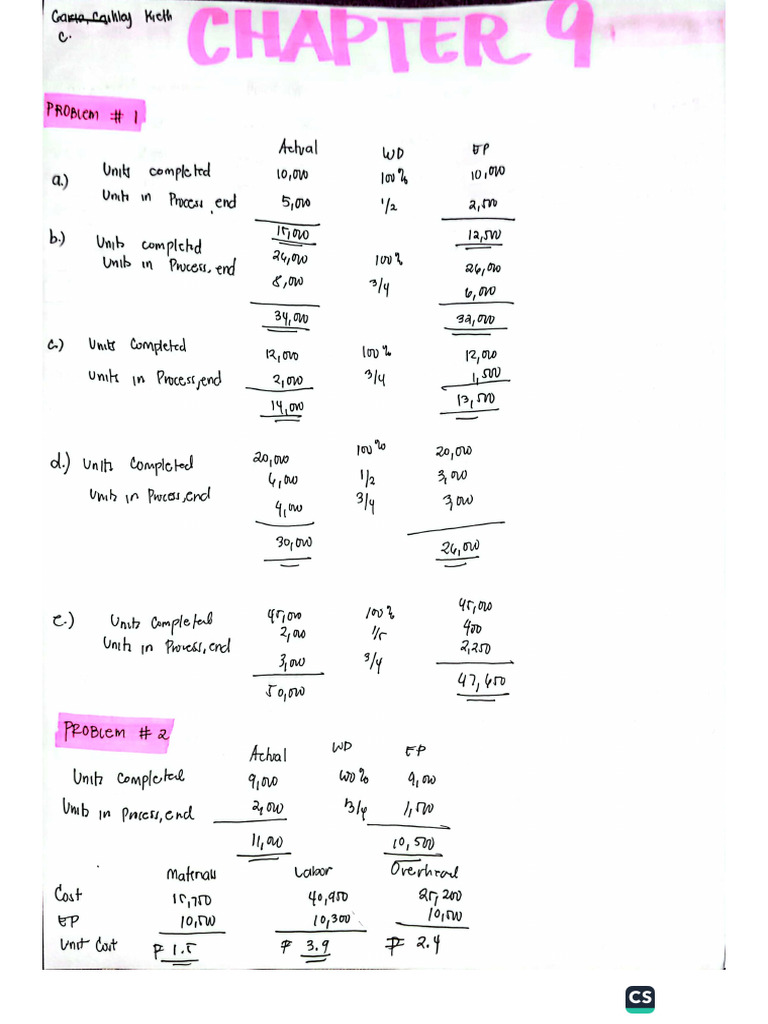 Kieth
C.
CHAPTER 9
PROBLEM # 1
Actual WD EP
a.) Units completed 10,000 100% 10,000
Units in Process, end 5,000 1/2 2,500
15,000 12,500
b.) Units completed 26,000 100% 26,000
Units in Process, end 8,000 3/4 6,000
34,000 32,000
c.) Units Completed 12,000 100% 12,000
Units in Process, end 2,000 3/4 1,500
14,000 13,500
d.) Units Completed 20,000 100% 20,000
6,000 1/2 3,000
Units in Process, end 4,000 3/4 3,000
30,000 26,000
e.) Units Completed 45,000 100% 45,000
2,000 1/5 400
Units in Process, end 3,000 3/4 2,250
50,000 47,650
PROBLEM # 2
Actual WD EP
Units Completed 9,000 100% 9,000
Units in Process, end 2,000 3/4 1,500
11,000 10,500
Materials Labor Overhead
Cost 15,750 40,950 25,200
EP 10,500 10,300 10,500
Unit Cost ₱ 1.5 ₱ 3.9 ₱ 2.4
CS